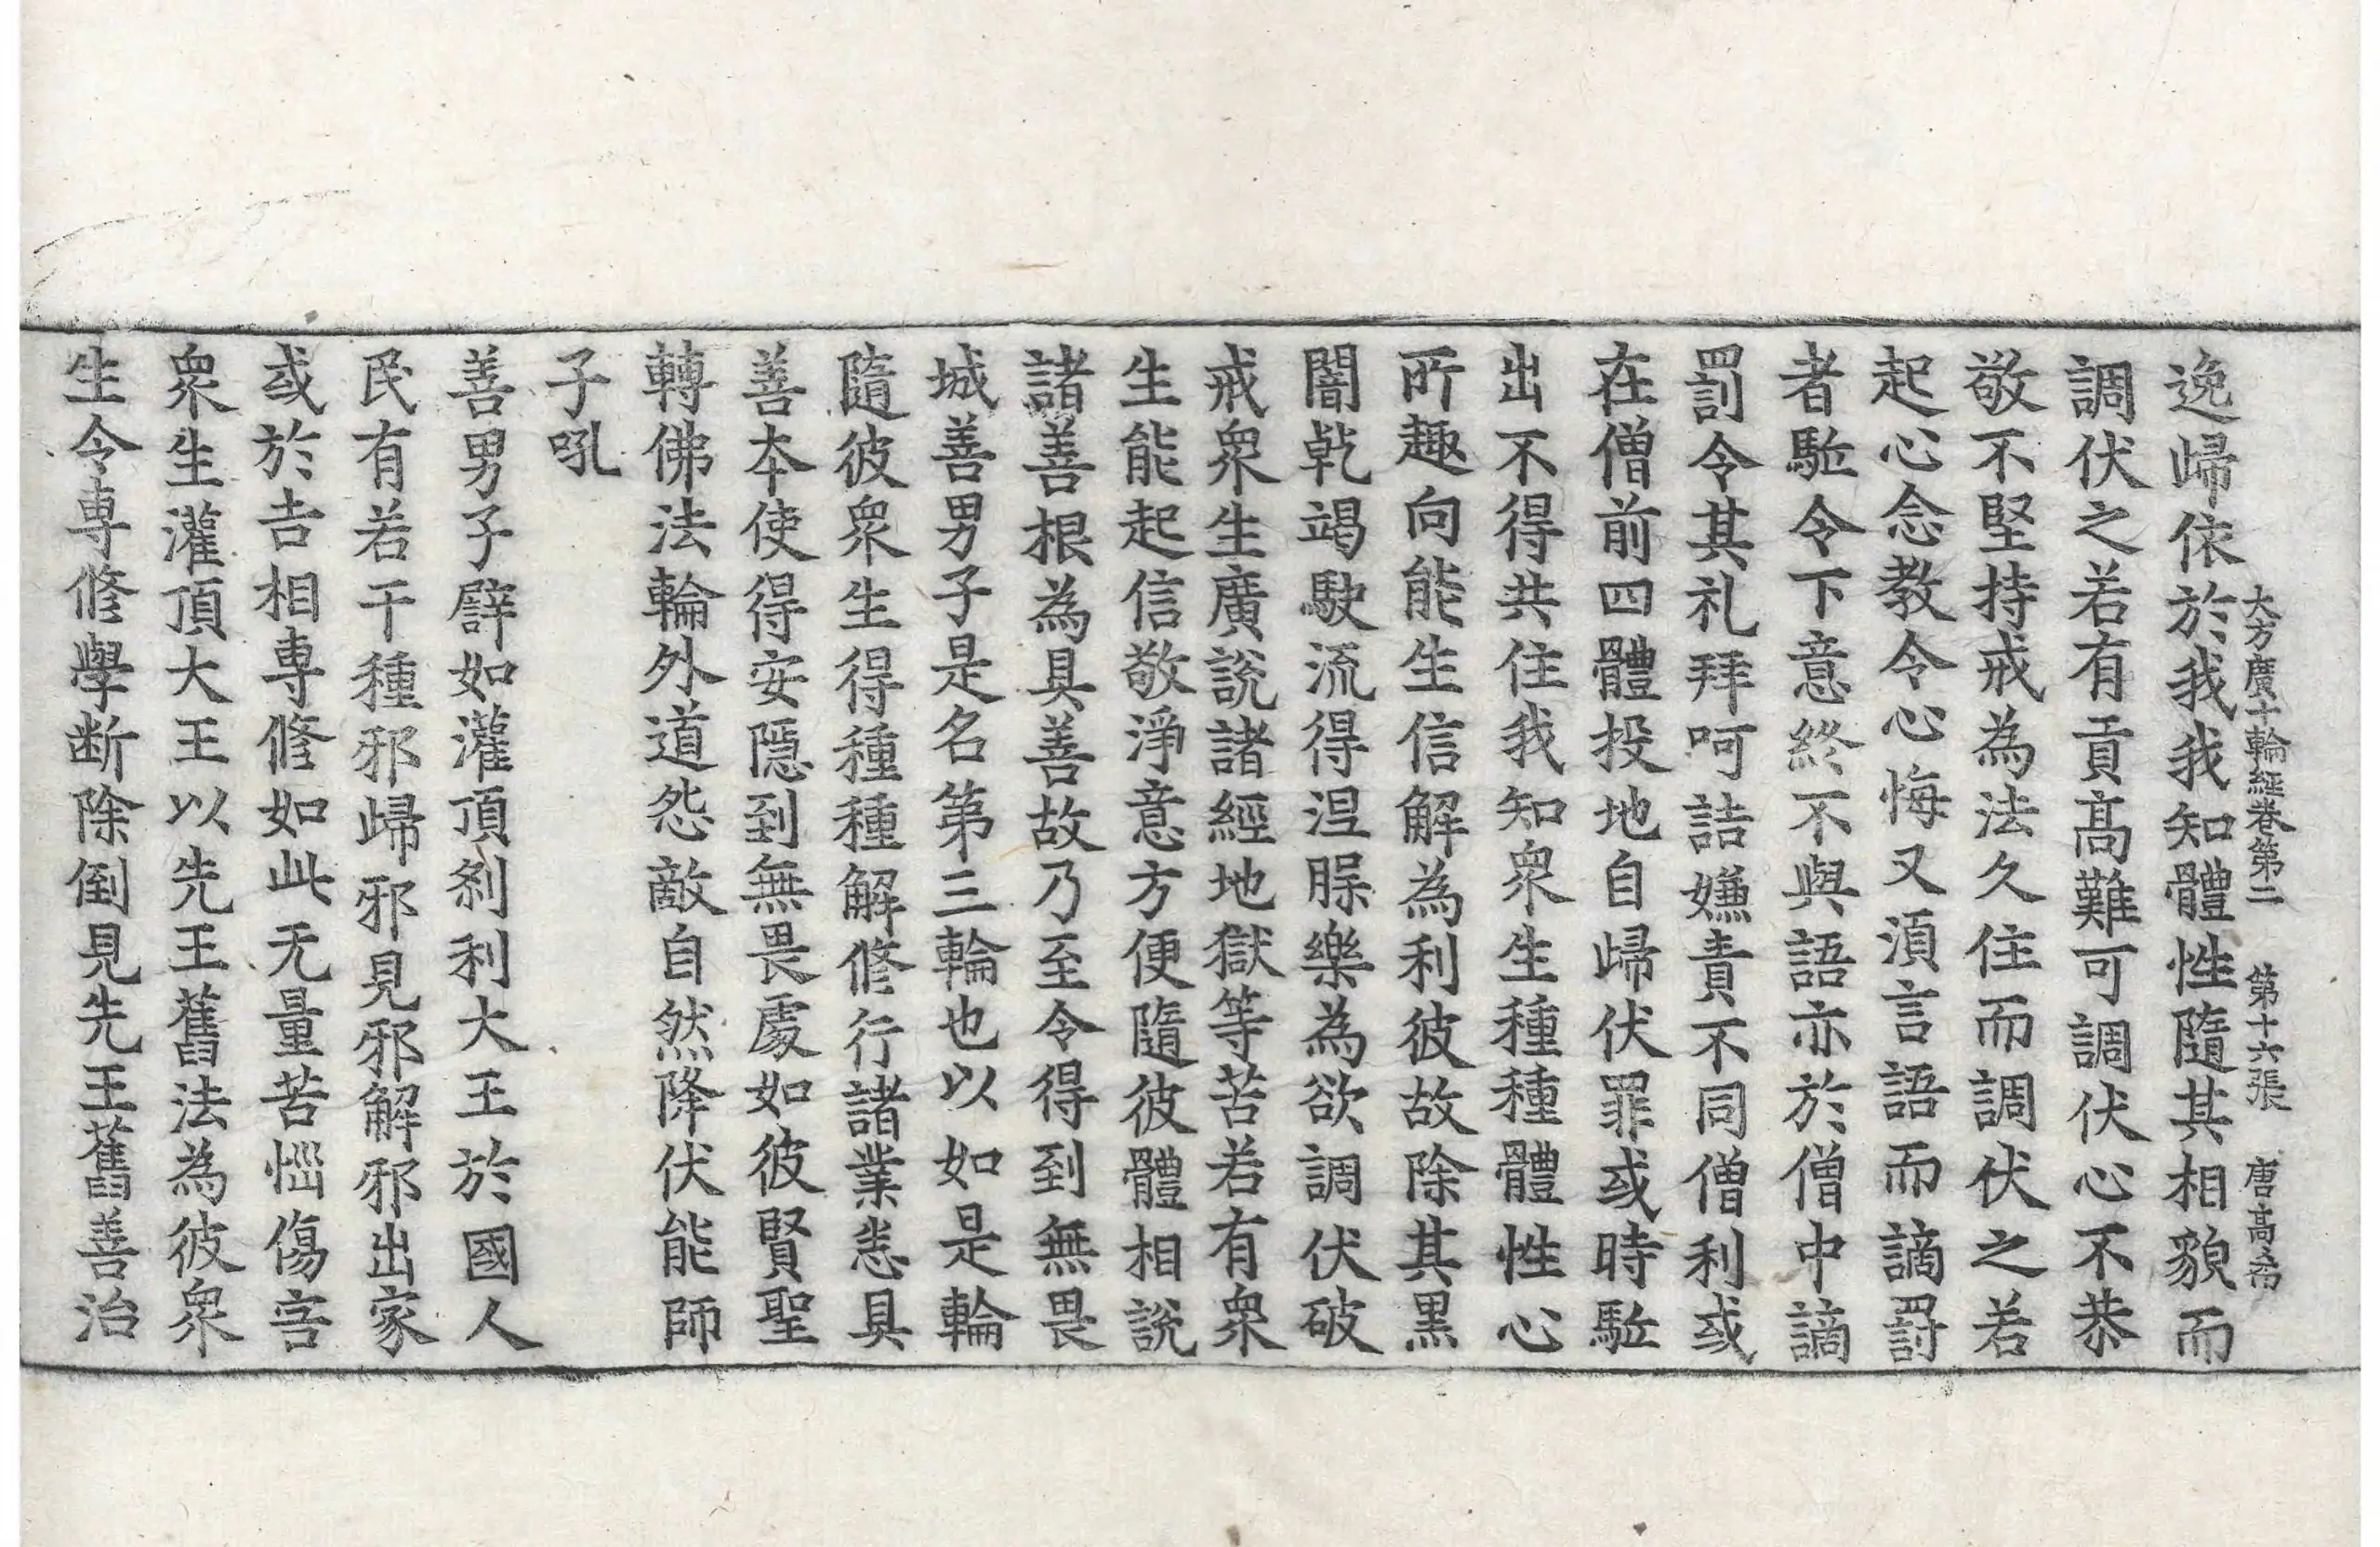 大方廣十輪經卷第二 第十六張 唐
逸歸依於我我知體性隨其相貌而
調伏之若有貢高難可調伏心不恭
敬不堅持戒為法久住而調伏之若
起心念教令心悔又湏言語而謫罰
者駈令下意終不與語亦於僧中謫
罰令其礼拜呵詰嫌責不同僧利或
在僧前四體投地自歸伏罪或時駈
出不得共住我知衆生種種體性心
所趣向能生信解為利彼故除其黑
闇乾竭駛流得涅槃樂為欲調伏破
戒衆生廣說諸經地獄等苦若有衆
生能起信敬淨意方便隨彼體相說
諸善根為具善故乃至令得到無畏
城善男子是名第三輪也以如是輪
隨彼衆生得種種解修行諸業悉具
善本使得安隱到無畏處如彼賢聖
轉佛法輪外道怨敵自然降伏能師
子吼
善男子譬如灌頂刹利大王於國人
民有若干種邪歸邪見邪解邪出家
或於吉相専修如此无量苦惱傷害
衆生灌頂大王以先王舊法為彼衆
生令専修學断除倒見先王舊善治